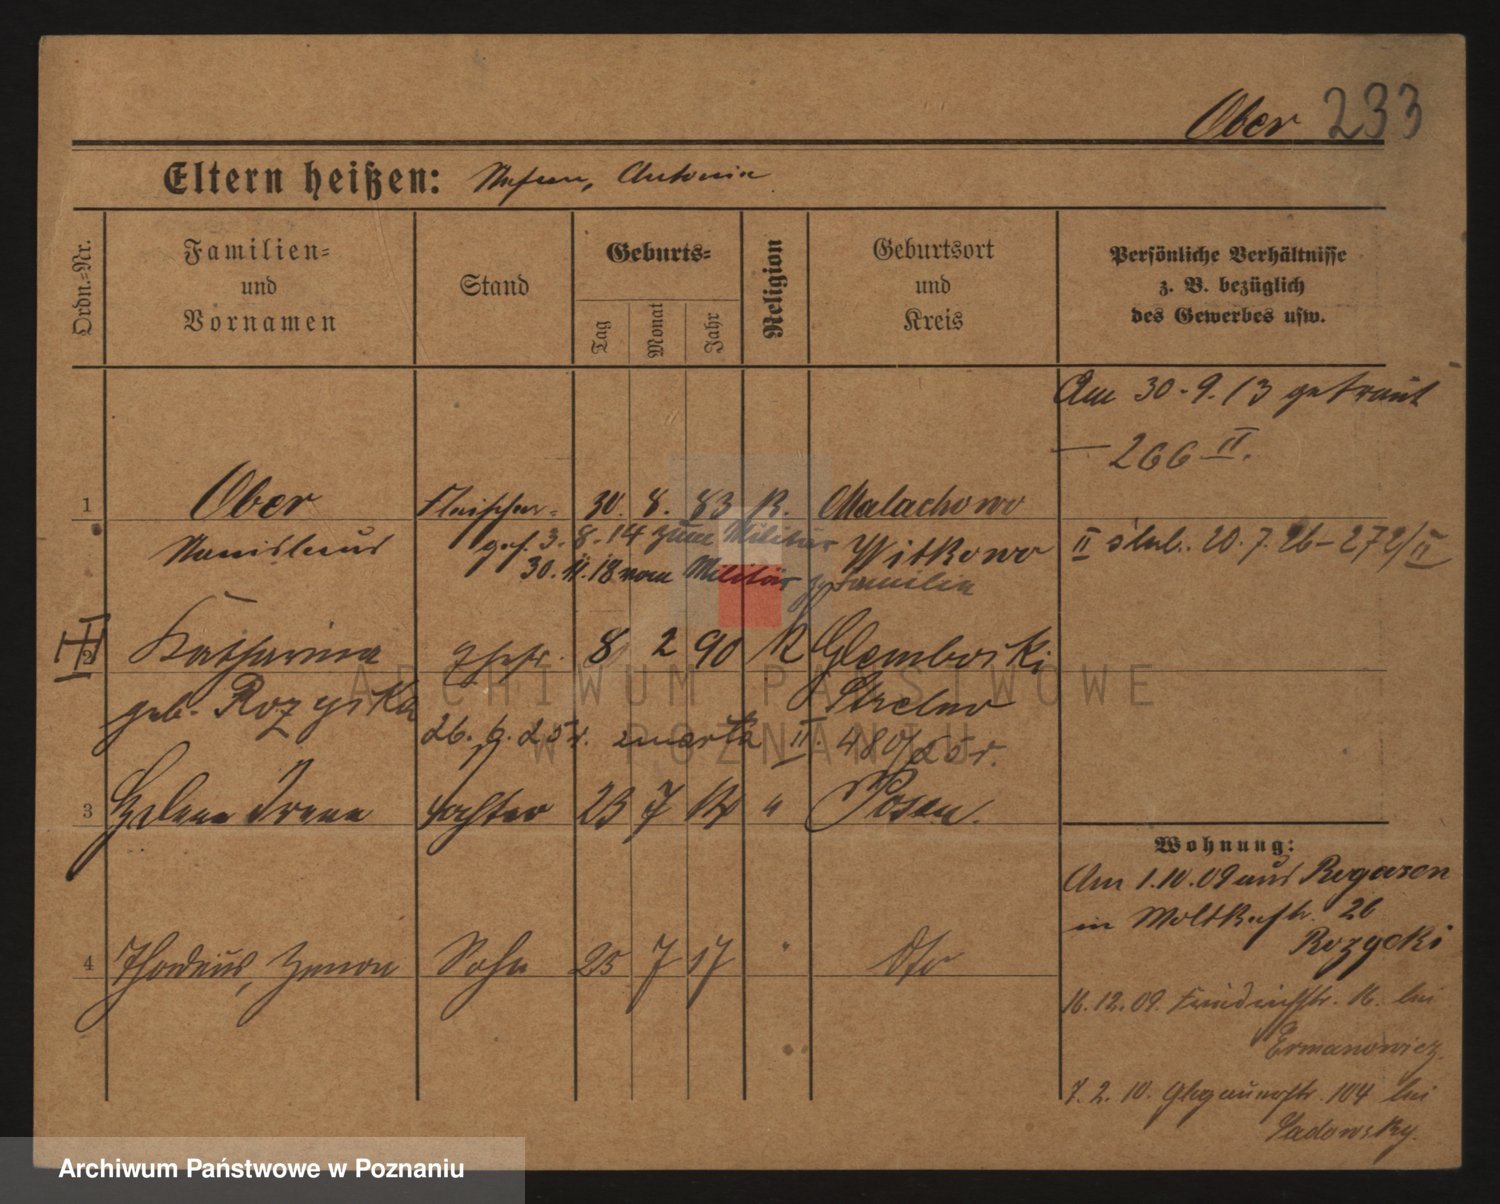 Ober 233
Eltern heißen: Stefan, Antonia
Ordn.-Nr.
Familien- und Vornamen
Stand
Geburts-
Tag
Monat
Jahr
Religion
Geburtsort und Kreis
Persönliche Verhältnisse z. B. bezüglich des Gewerbes usw.
Am 30.9.13 getraut
266 II.
1 Ober Fleischer- 30. 8. 83 R. Malachowo
Stanislaus gef. 3.8.14 zum Militär Witkowo
II 20.7.26-272/II
30.11.18 vom Militär z. Familie
II
2 Katharina Ehefr. 8 2 90 R Glembocki
geb. Rozycka Strelno
26. 6. 25 r. zmarła II. 480/25 r.
3 Helene Irene Tochter 23 7 14 " Posen.
Wohnung:
Am 1.10.09 aus Rogasen
in Moltkestr. 26
Rozycki
4 Thadeus, Zenon Sohn 25 7 17 " dto
16.12.09. Friedrichstr. 16. bei
Ermanowicz.
7. 2. 10. Glogauerstr. 104 bei
Sadowsky.
ARCHIWUM PAŃSTWOWE
W POZNANIU
Archiwum Państwowe w Poznaniu